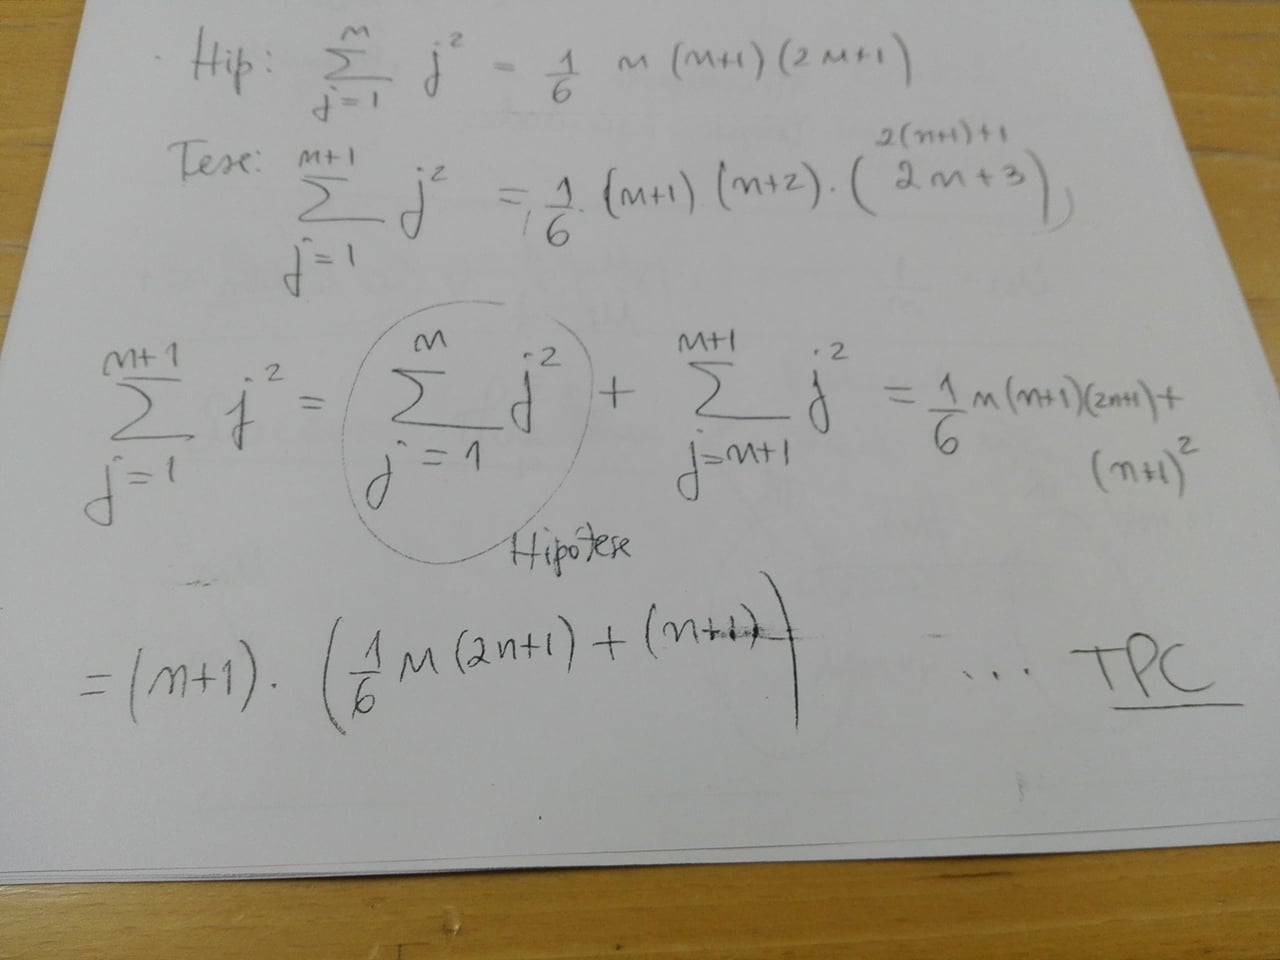 Hip: ∑_{j=1}^{n} j² = 1/6 n (n+1) (2n+1)
2(n+1)+1
Tese: ∑_{j=1}^{n+1} j² = 1/6 (n+1) (n+2) · (2n+3)
∑_{j=1}^{n+1} j² = ∑_{j=1}^{n} j² + ∑_{j=n+1}^{n+1} j² = 1/6 n(n+1)(2n+1) +
(n+1)²
Hipótese
= (n+1) · (1/6 n (2n+1) + (n+1)) ... TPC